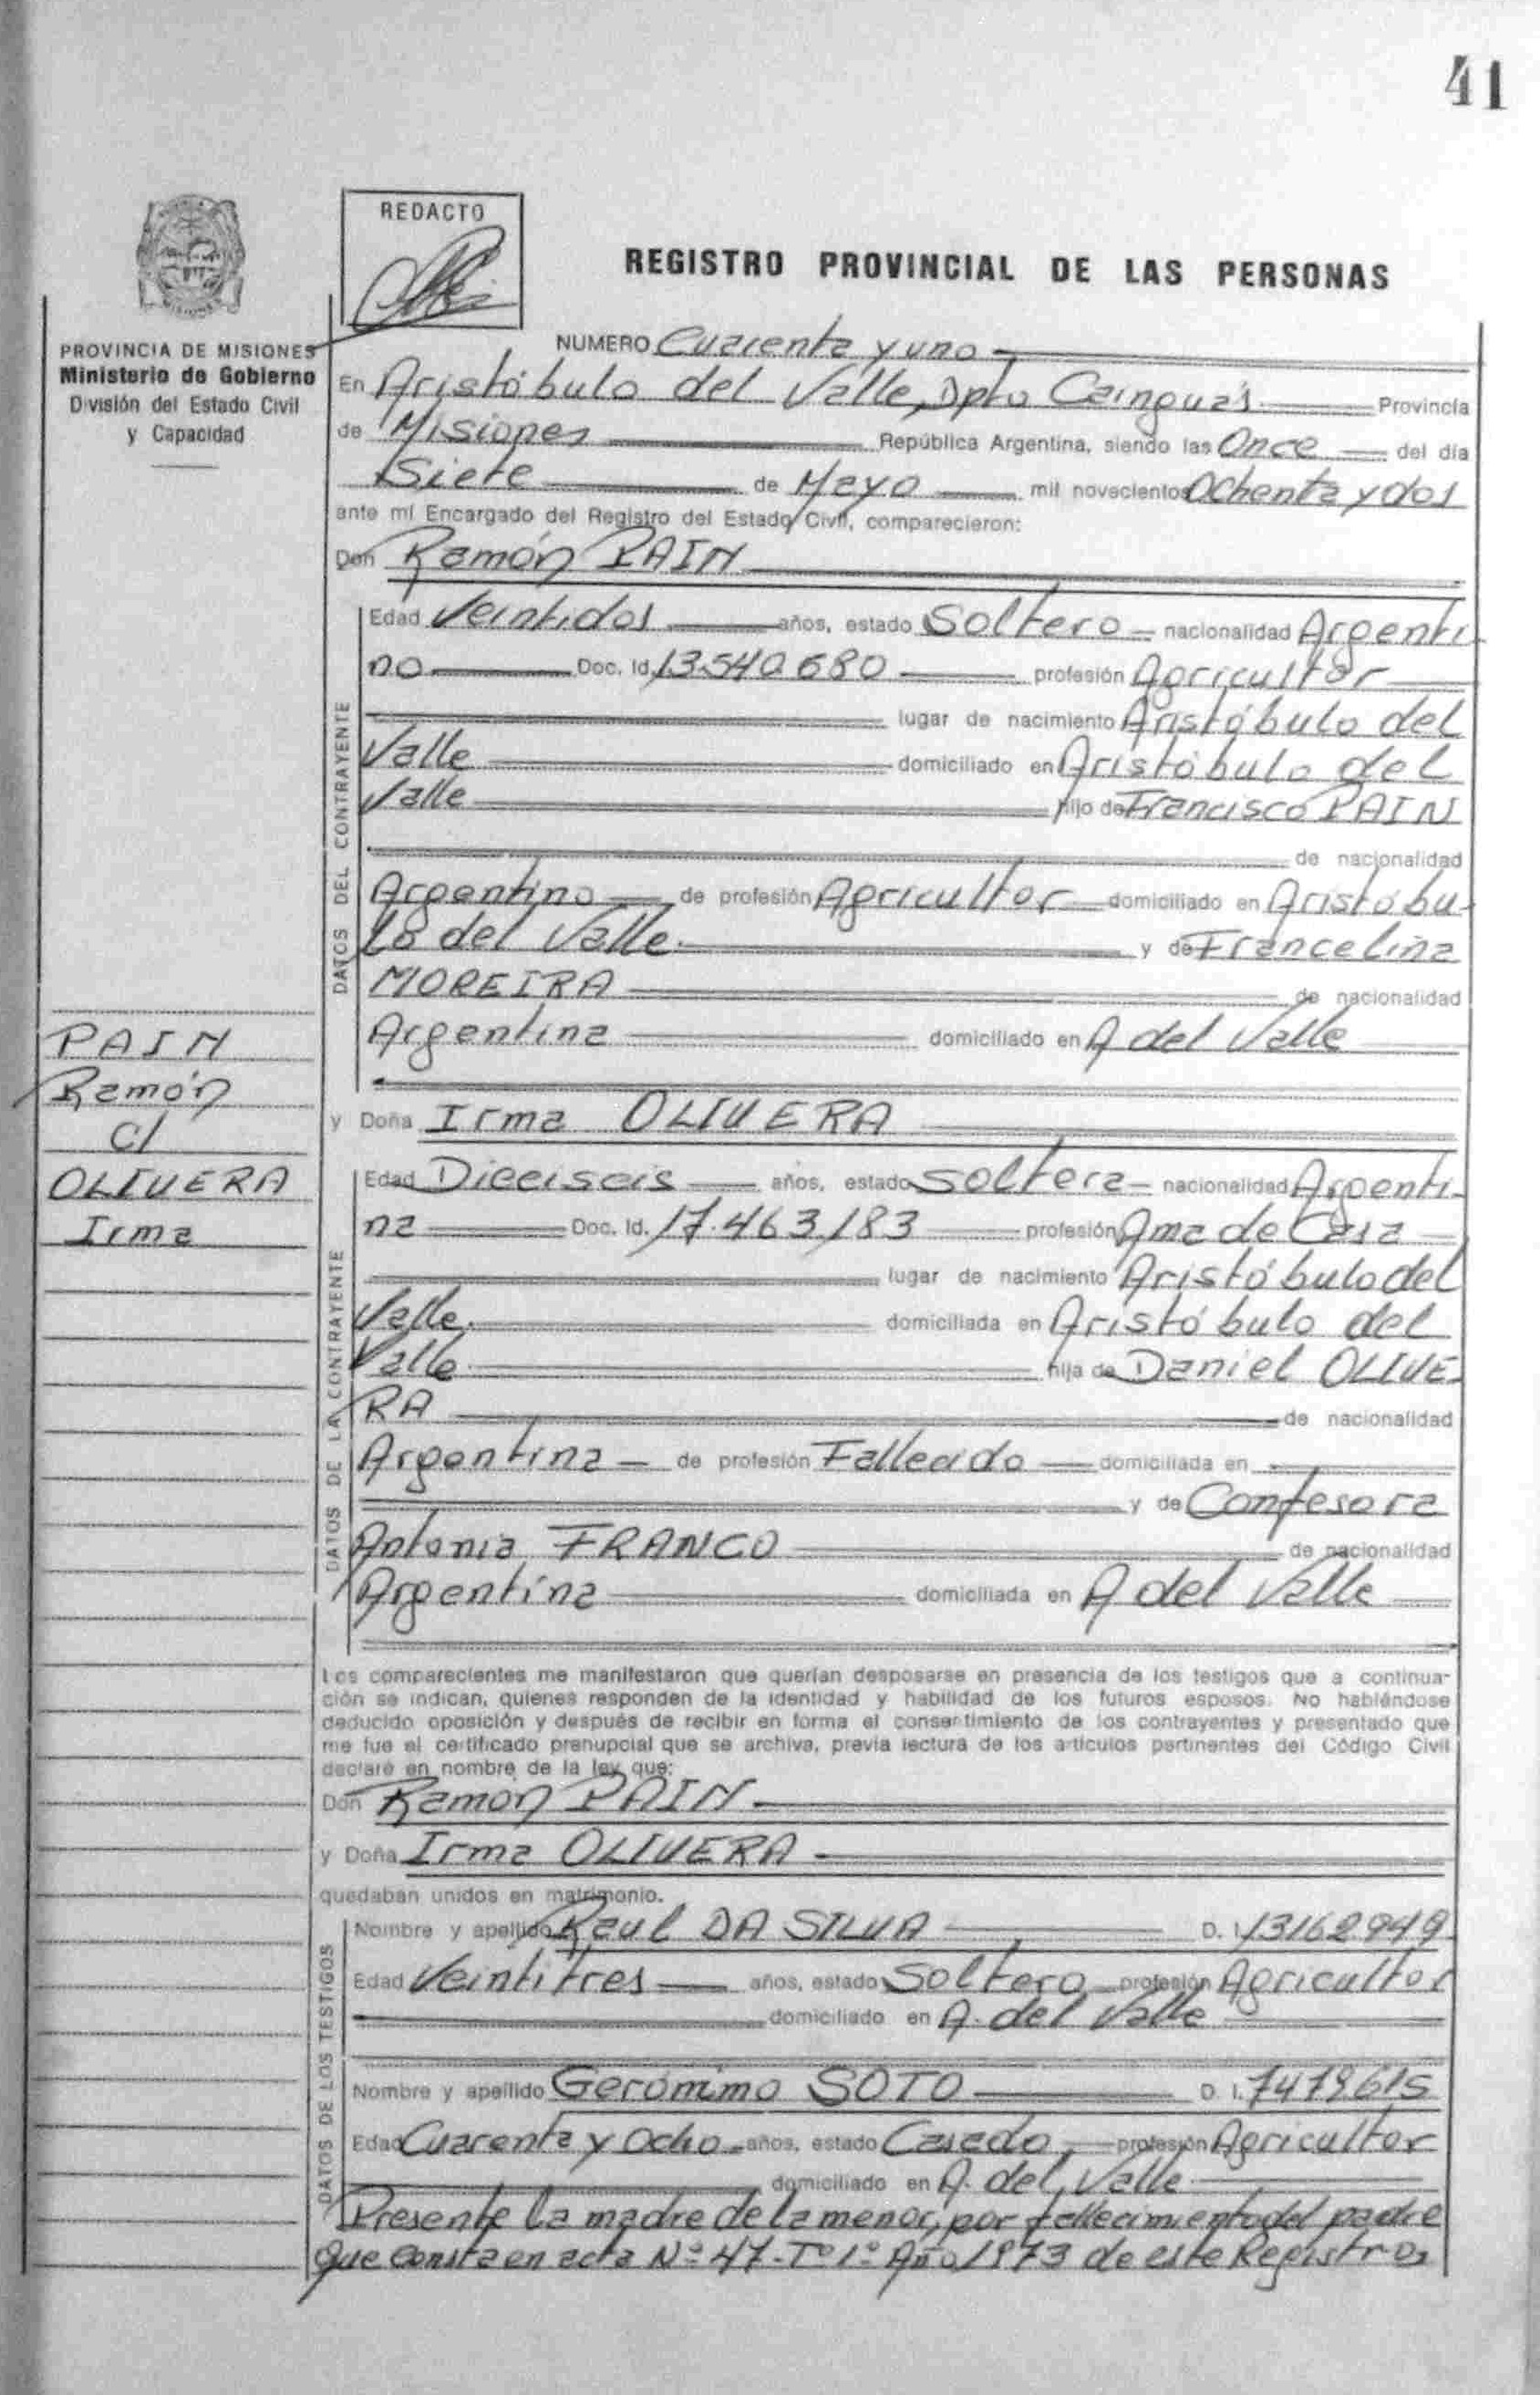 41
REDACTO
REGISTRO PROVINCIAL DE LAS PERSONAS
PROVINCIA DE MISIONES
Ministerio de Gobierno
División del Estado Civil
y Capacidad
NUMERO Cuarenta y uno
En Aristóbulo del Valle, Dpto Cainguás Provincia
de Misiones República Argentina, siendo las Once del día
Siete de Mayo mil novecientos Ochenta y dos
ante mí Encargado del Registro del Estado Civil, comparecieron:
Don Ramón PAIN
DATOS DEL CONTRAYENTE
Edad Veintidos años, estado Soltero nacionalidad Argenti
no Doc. Id. 13.540.680 profesión Agricultor
lugar de nacimiento Aristóbulo del
Valle domiciliado en Aristóbulo del
Valle hijo de Francisco PAIN
de nacionalidad
Argentino de profesión Agricultor domiciliado en Aristóbu-
lo del Valle. y de Francelina
MOREIRA de nacionalidad
Argentina domiciliado en A del Valle
PAIN
Ramón
c/
OLIVERA
Irma
y Doña Irma OLIVERA
DATOS DE LA CONTRAYENTE
Edad Dieciseis años, estado Soltera nacionalidad Argenti-
na Doc. Id. 17.463.183 profesión Ama de Casa
lugar de nacimiento Aristóbulo del
Valle. domiciliada en Aristóbulo del
Valle hija de Daniel OLIVE-
RA de nacionalidad
Argentina de profesión Fallecido domiciliada en
y de Confesora
Antonia FRANCO de nacionalidad
Argentina domiciliada en A del Valle
Los comparecientes me manifestaron que querían desposarse en presencia de los testigos que a continua-
ción se indican, quienes responden de la identidad y habilidad de los futuros esposos. No habiéndose
deducido oposición y después de recibir en forma el consentimiento de los contrayentes y presentado que
me fue el certificado prenupcial que se archiva, previa lectura de los artículos pertinentes del Código Civil
declaré en nombre de la ley que:
Don Ramón PAIN
y Doña Irma OLIVERA
quedaban unidos en matrimonio.
DATOS DE LOS TESTIGOS
Nombre y apellido Raul DA SILVA D. I. 13162.949
Edad Veintitres años, estado Soltero profesión Agricultor
domiciliado en A. del Valle
Nombre y apellido Gerónimo SOTO D. I. 7479615
Edad Cuarenta y Ocho años, estado Casado profesión Agricultor
domiciliado en A. del Valle
Presente la madre de la menor, por fallecimiento del padre
que consta en acta Nº 47-Tº 1º Año 1973 de este Registro